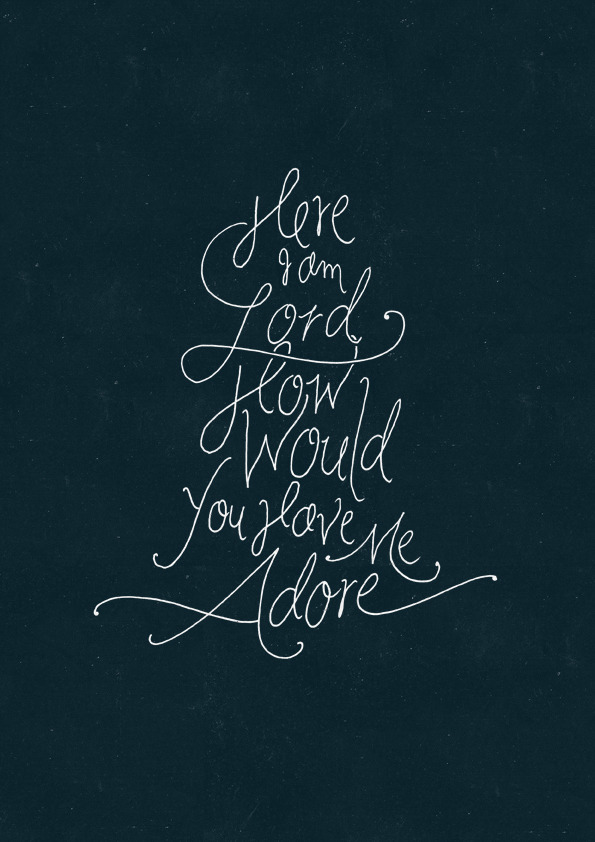 Here
I am
Lord,
How
Would
You Have Me
Adore